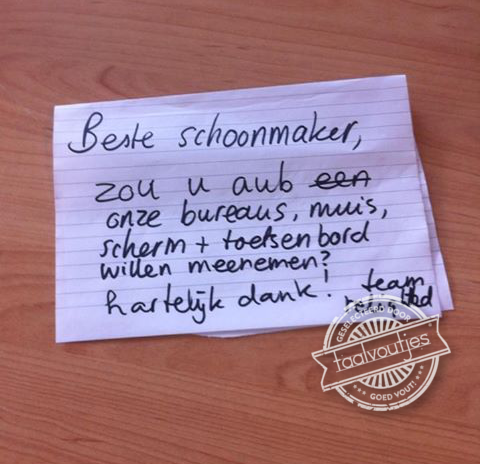 Beste schoonmaker,
zou u aub een
onze bureaus, muis,
scherm + toetsenbord
willen meenemen?
hartelijk dank! team
GESELECTEERD DOOR
taalvoutjes
GOED VOUT!